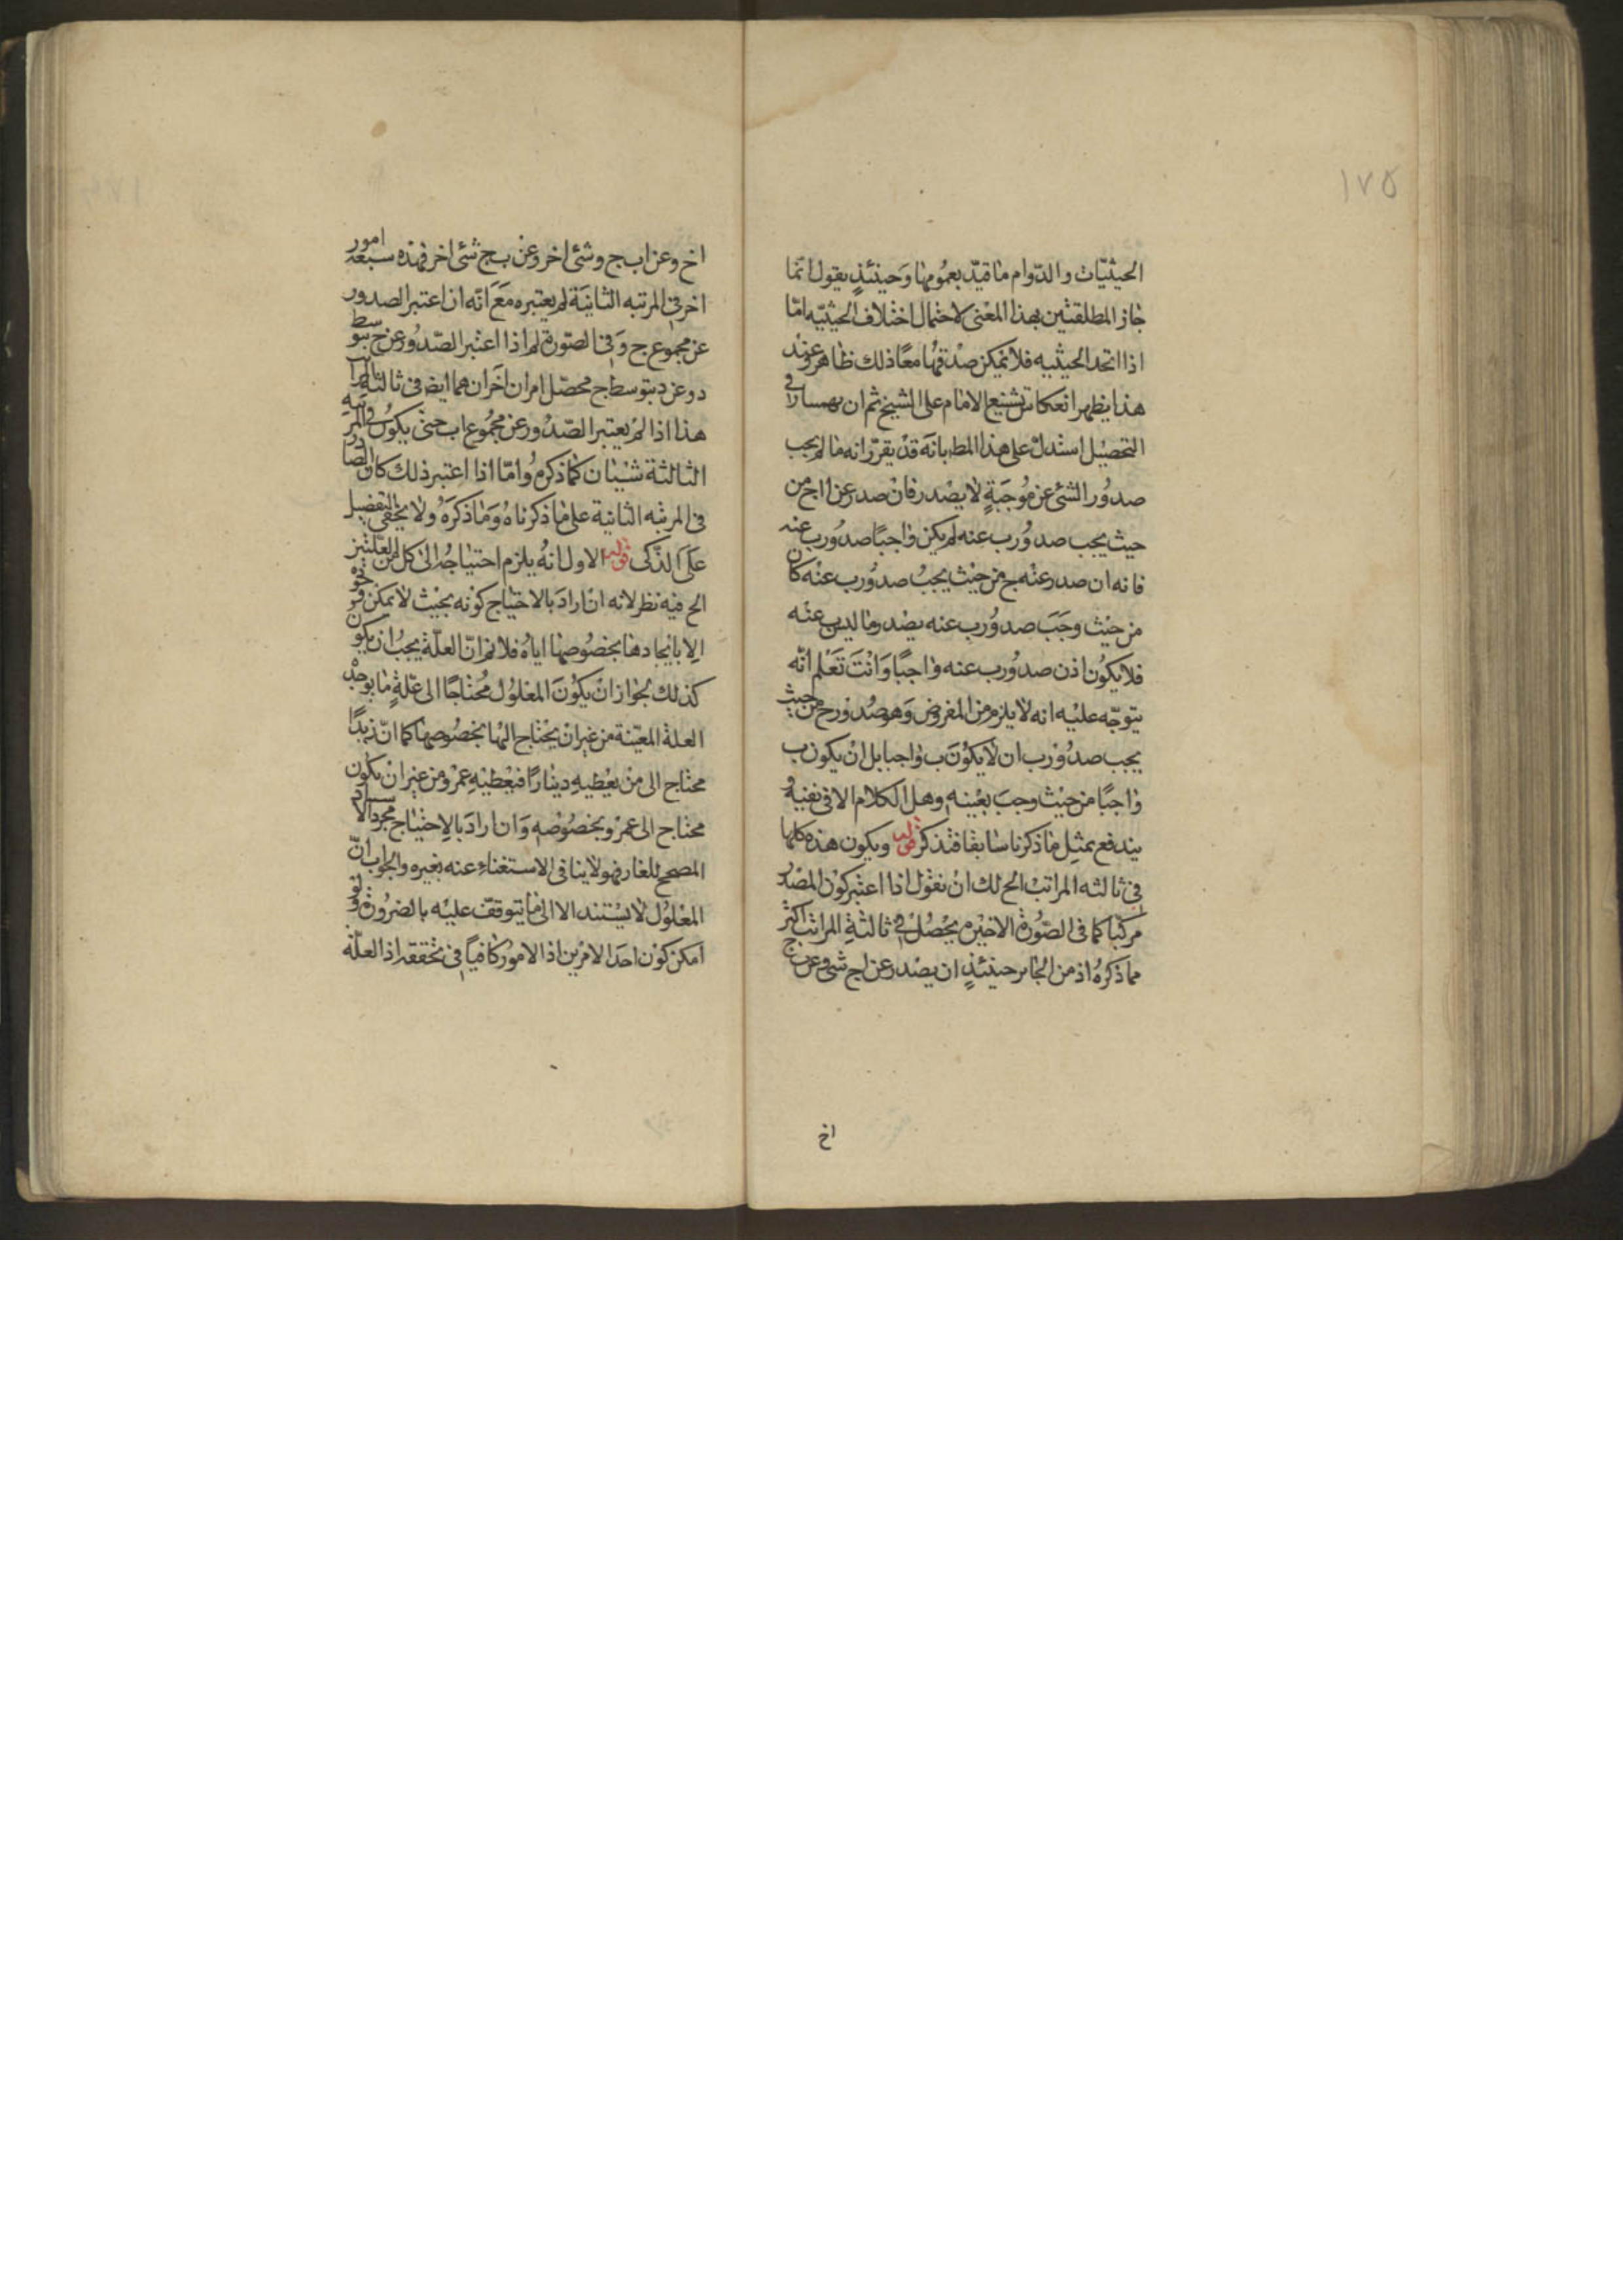 ١٧٥
الحيثيّات والدّوام ما قيدّ بعمُومها وَحينئذٍ يقول انّما
جاز المطلقتين بهذا المعْنى لاحتمال اختلاف الحيثيّه امّا
اذا اتحد الحيثيه فلا يمكن صدْقهُما معًا ذلك ظاهر وعند
هذا يظهر انعكاس تشنيع الامام على الشيخ ثم ان بهمسار فى
التحصيْل استدلّ على هذا المط بانّه قدْ يقرّر انه ما لم يجب
صدُور الشئ عن مُوجَبةٍ لا يصْدر فانْ صدر عن ا ج من
حيث يجب صدوُر ب عنه لم يكن واجبًا صدوُر ب عنه
فانه ان صدر عنْه ج من حيْث يجبُ صدوُر ب عنْه كان
من حيْث وجَبَ صدوُر ب عنه يصْدر ما ليس ب عنْه
فلا يكوُن اذن صدوُر ب عنه واجبًا وَانْتَ تَعْلم انّه
يتوجّه عليْه انه لا يلزم من المفروض وَهو صُدوْر ج من حيث
يجب صدوُر ب ان لا يكوُنَ ب واجبا بل انْ يكون ب
واجبًا من حيْث وجبَ بعْينه وهل الكلام الا فى نفيهُ
يندفع بمثِل ما ذكرنا سابقا فتذكّر قوله ويكون هذه كلها
فى ثالثه المراتبْ الح لك انْ نقوْل اذا اعتبر كوْن المصْدر
مركبّا كما فى الصّوُرة الاخيْره يحْصُلُ فى ثالثةِ المراتب اكثر
مما ذكرهُ اذ من الجائر حينئذٍ ان يصْدر عن ا ج شئ وعن ب ج
اخ
اخ وعن ا ب ج وشئ اخر وعن ب ج شئ اخر فهذه سبعة امور
اخر فى المرتبه الثانيَة لم يعتبره مَعَ انّه ان اعتبر الصدور
عن مجموع ج و فى الصّورة لم اذا اعتبر الصّدوُر عن ج بتوسط
د وعن د بتوسط ج محصّل امران اخَران هما ايض فى ثالثة المراتب
هذا اذا لمْ يعتبر الصّدوُر عن مجمُوع ا ب حتى يكوُن فى المرتبه
الثالثة شيْئان كما ذكره وُامّا اذا اعتبر ذلك كان الصادر
فى المرتبه الثانية على ما ذكرناهُ وَما ذكرَهُ ولا يخفى التفصيل
علَى الذّكى قوله الاول انهُ يلزم احتياجهُ الى كل من العلّتين
الح فيْه نظر لانه انْ ارادَ بالاحتياج كوْنه بحيْث لا يمكن وجوده
الا بايْجادها بخصُوصها اياهُ فلا نم انّ العلّة يجبُ ان يكون
كذلك لجوازانْ يكوُنَ المعْلوُل مُحتاجًا الى علّةٍ ما يوجدْه
العلة المعيّنة من غيِر انْ يحْتاج اليْها بخصُوصها كما انّ زيدًا
محتاج الى منْ يعُطيهِ دينارًا فيُعْطيْهِ عمْرو من غيِر انْ يكون
محتاج الى عمْرو بخصُوْصه وَان ارادَ بالاِحتياج مجرد الا
المصحح للفا فهو لا ينافى الاستغناءِ عنه بغيره والجواب انّ
المعْلوُل لا يسْتند الا الى ما يتوقفّ عليْه بالضروُرة ولو
امكن كوْن احدَ الامْرين اذ الامورُ كافيًا فى تحققه اذ العلّة